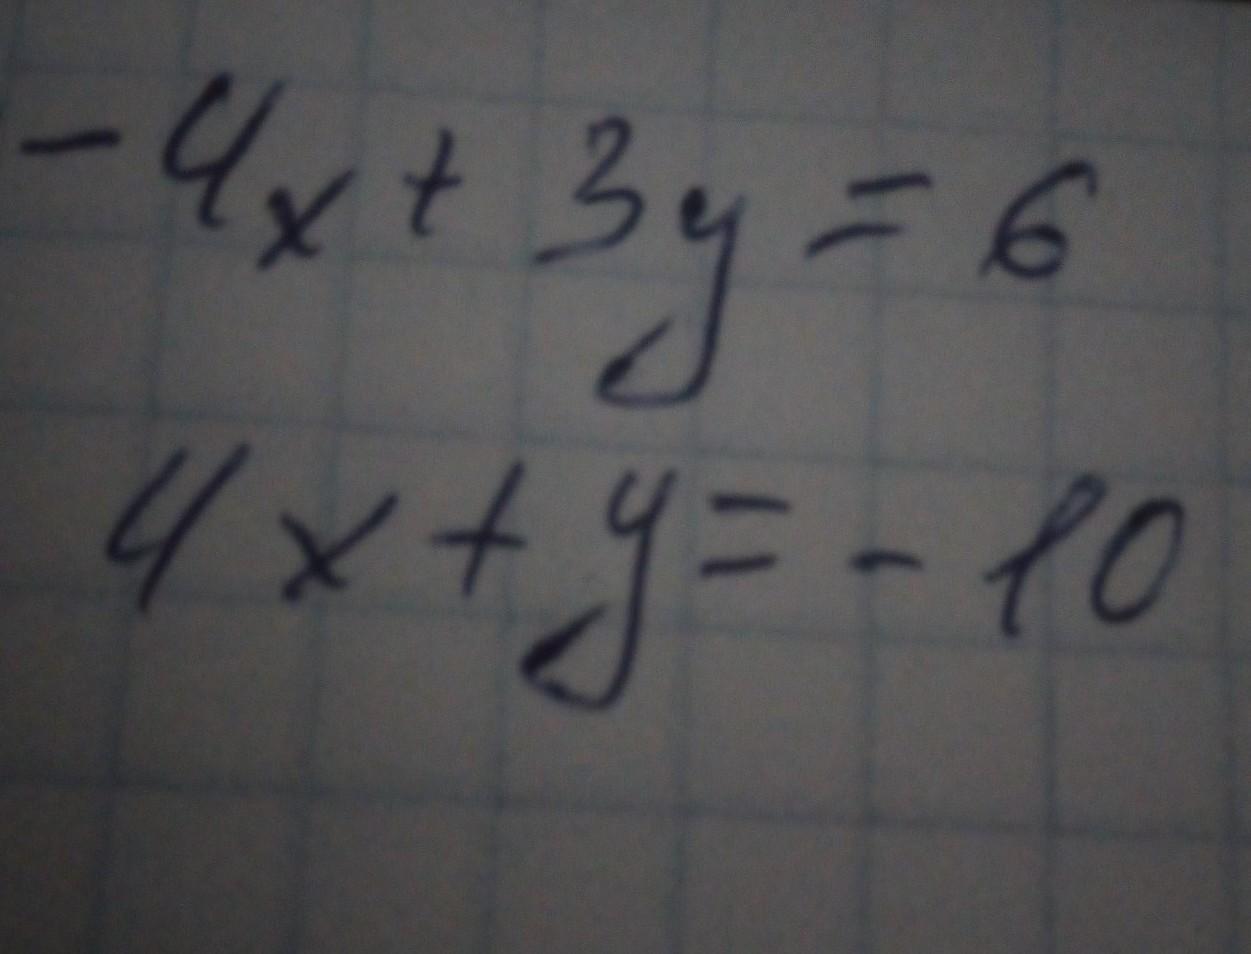 -4x + 3y = 6
4x + y = -10